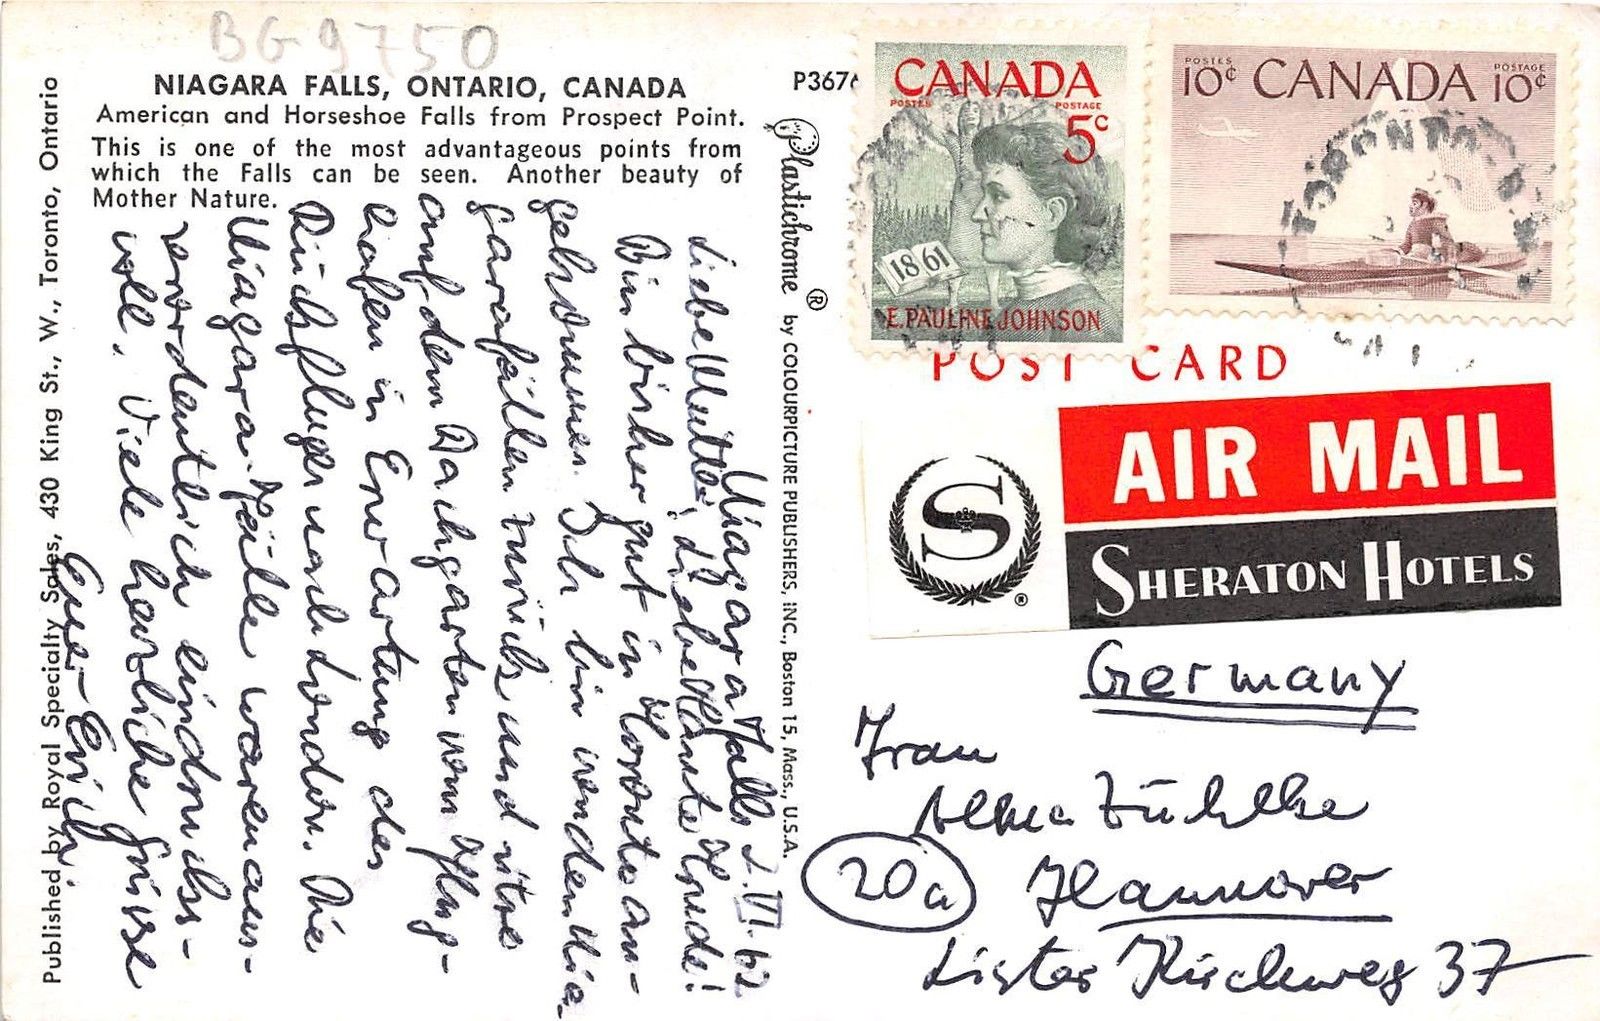 BG 9750
NIAGARA FALLS, ONTARIO, CANADA
American and Horseshoe Falls from Prospect Point.
This is one of the most advantageous points from
which the Falls can be seen. Another beauty of
Mother Nature.
P3676
Published by Royal Specialty Sales, 430 King St., W., Toronto, Ontario
Plastichrome ® by COLOURPICTURE PUBLISHERS, INC., Boston 15, Mass., U.S.A.
Niagara Falls 2.VI.62
Liebe Mutti, liebe Tante Trude!
Bin bisher gut in Toronto an-
gekommen. Ich bin von den Nia-
garafällen zurück und sitze
auf dem Dachgarten vom Flug-
hafen in Erwartung des
Rückfluges nach London. Die
Niagara-Fälle waren aus-
serordentlich eindrucks-
voll. Viele herzliche Grüsse
Euer Erich.
CANADA
POSTES POSTAGE
5c
1861
E. PAULINE JOHNSON
POSTES POSTAGE
10¢ CANADA 10¢
TORONTO
POST CARD
AIR MAIL
S ®
SHERATON HOTELS
Germany
Frau
Alma Zühlke
20a Hannover
Lister Kirchweg 37